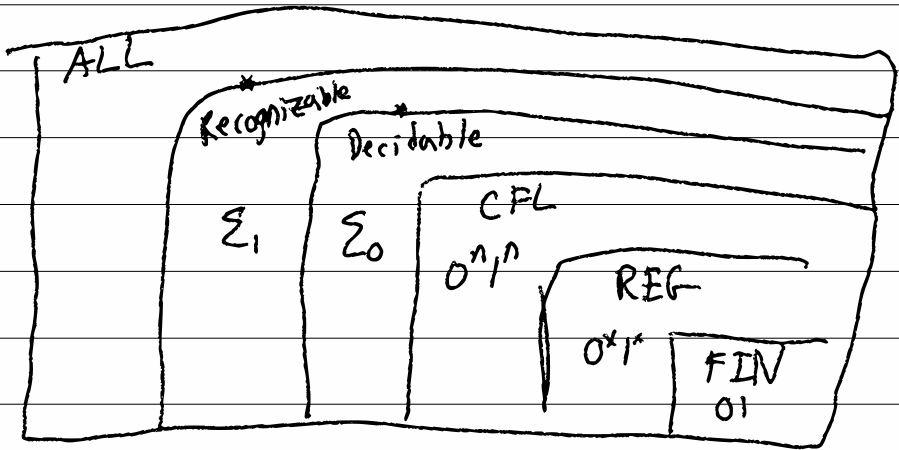 ALL
Recognizable
Decidable
CFL
Σ₁
Σ₀
0ⁿ1ⁿ
REG
0*1*
FIN
01